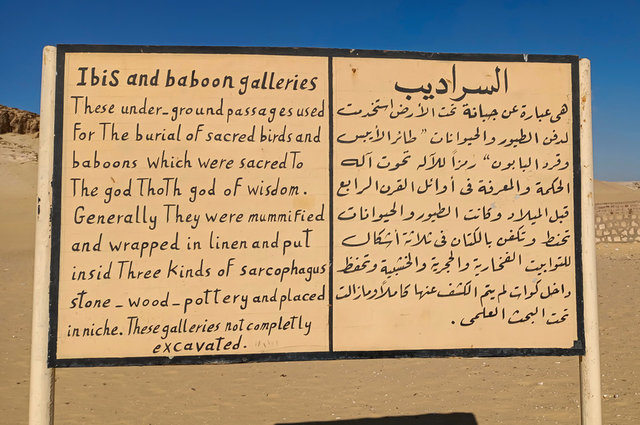 Ibis and baboon galleries
These under_ground passages used
For The burial of sacred birds and
baboons which were sacred To
The god ThoTh god of wisdom.
Generally They were mummified
and wrapped in linen and put
insid Three kinds of sarcophagus
stone_wood_pottery and placed
in niche. These galleries not completly
excavated.
السراديب
هى عبارة عن جبانة تحت الأرض استخدمت
لدفن الطيور والحيوانات "طائر الأيبس
وقرد البابون" رمزاً للآله تحوت آله
الحكمة والمعرفة فى أوائل القرن الرابع
قبل الميلاد وكانت الطيور والحيوانات
تحنط وتكفن بالكتان فى ثلاثة أشكال
للتوابيت الفخارية والحجرية والخشبية وتحفظ
داخل كوات لم يتم الكشف عنها كاملاً ومازالت
تحت البحث العلمى.